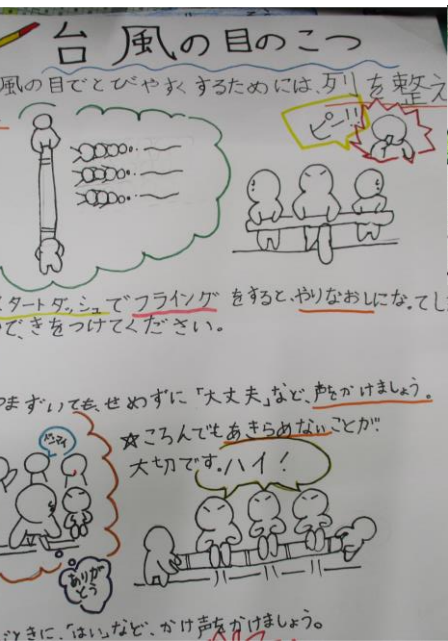 台風の目のこつ
風の目でとびやすくするためには、列を整え
ピー!!
スタートダッシュでフライングをすると、やりなおしになってし
で、きをつけてください。
つまずいても、せめずに「大丈夫」など、声をかけましょう。
ドンマイ
☆ころんでもあきらめないことが
大切です。
ハイ!
ありがとう
ときに、「はい」など、かけ声をかけましょう。